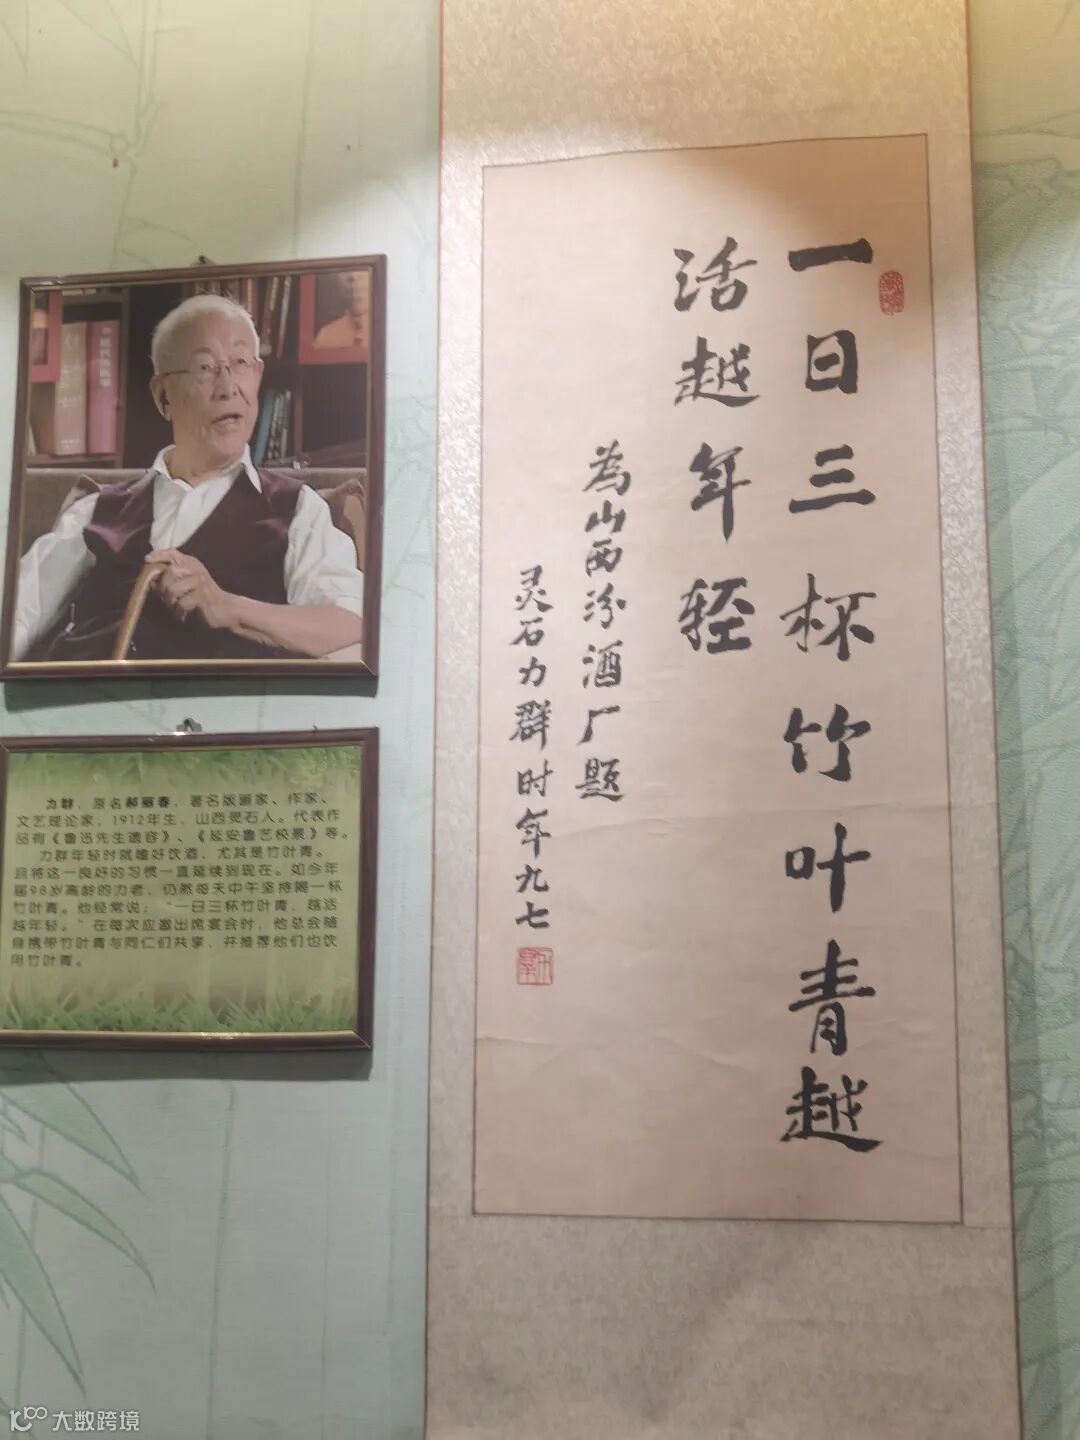 一日三杯竹叶青越
活越年轻
为山西汾酒厂题
灵石力群时年九七
力群，原名郝丽春，著名版画家、作家、
文艺理论家，1912年生，山西灵石人。代表作
品有《鲁迅先生遗容》、《延安鲁艺校景》等。
力群年轻时就嗜好饮酒，尤其是竹叶青。
且将这一良好的习惯一直延续到现在。如今年
届98岁高龄的力老，仍然每天中午坚持喝一杯
竹叶青。他经常说：“一日三杯竹叶青，越活
越年轻。”在每次应邀出席宴会时，他总会随
身携带竹叶青与同仁们共享，并推荐他们也饮
用竹叶青。
大数跨境